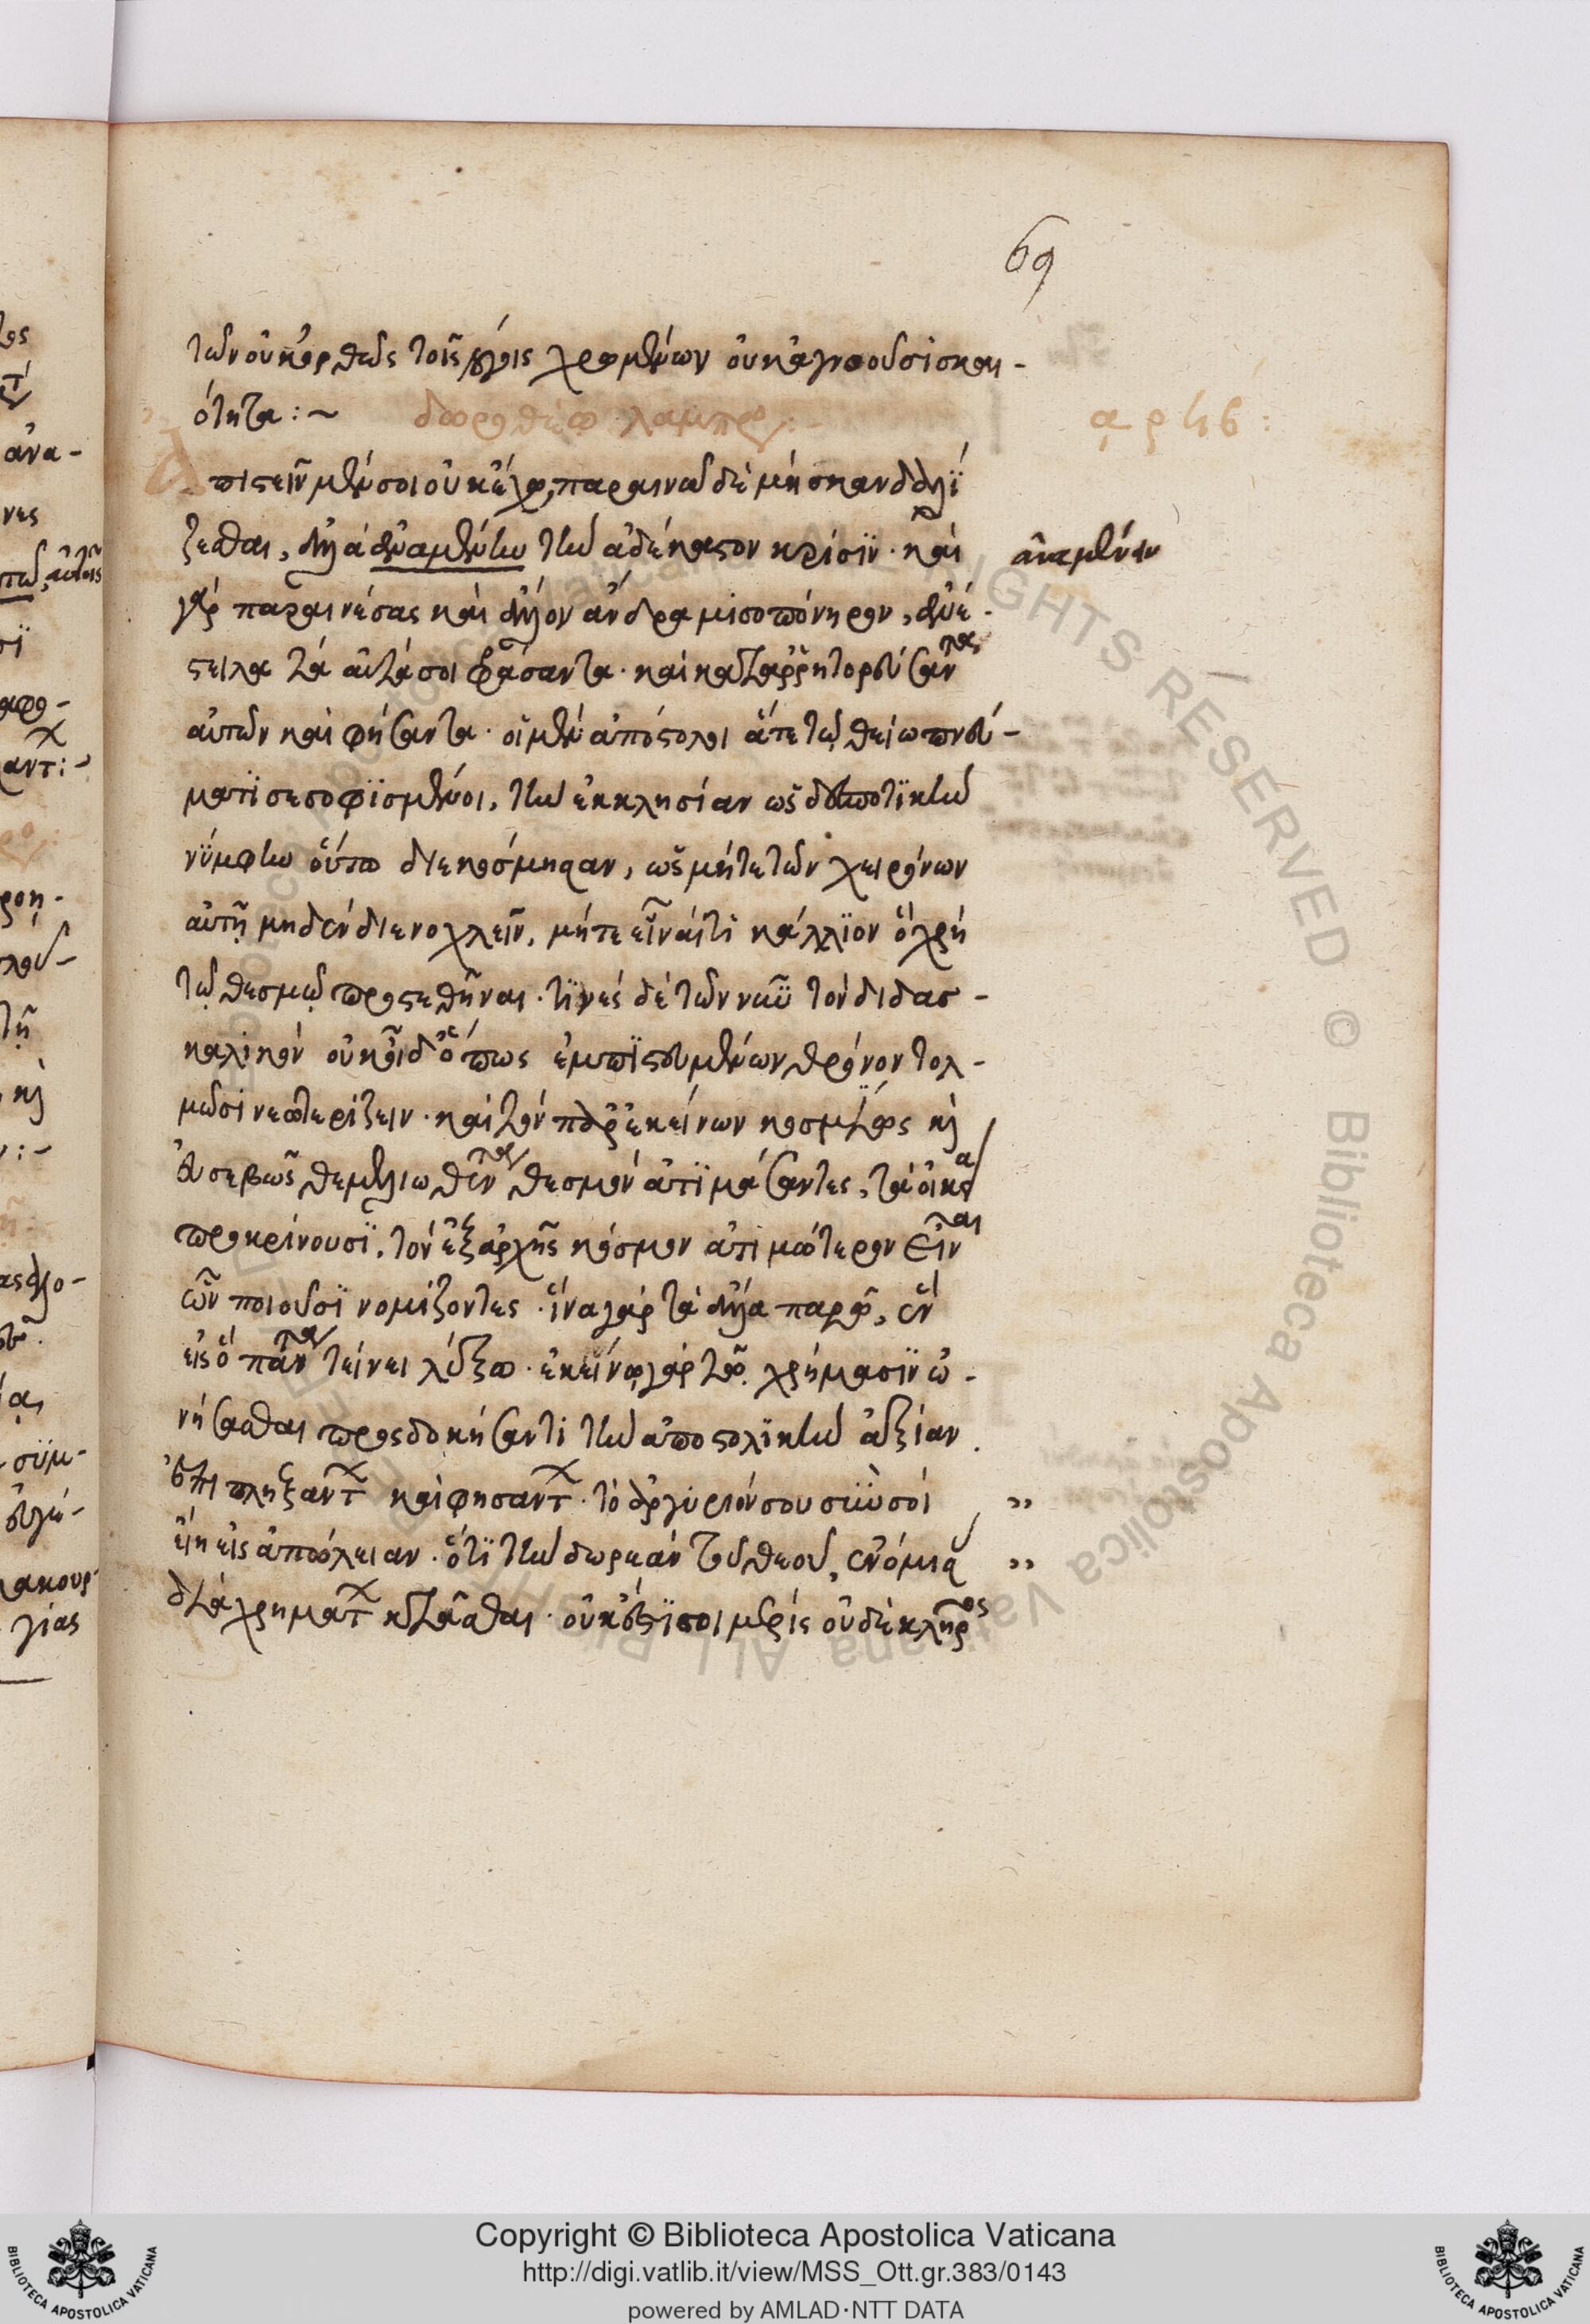 69
τῶν οὐκ ὀρθῶς τοῖς λόγοις χρωμένων οὐκ ἀγνοοῦσι σκαι-
ότητα :~
δωροθέω λαμπρῶ:
αρϟβ:
ἀπιστεῖν μέν σοι οὐκ ἔχω, παραινῶ δὲ μὴ σκανδαλί
ζεσθαι, ἀλλὰ ἀναμένειν τὴν ἀδέκαστον κρίσιν· καὶ
ἀναμένειν
γὰρ παραινέσας καὶ ἄλλον ἄνδρα μισοπόνηρον, ἀνέ-
στειλα τὰ αὐτά σοι φράσαντα· καὶ καταῤῥητορεύσαντας
αὐτῶν καὶ φήσαντα· οἱ μὲν ἀπόστολοι ἅτε τῷ θείῳ πνεύ-
ματι σεσοφισμένοι, τὴν ἐκκλησίαν ὡς δεσποτικὴν
νύμφην οὕτω διεκόσμησαν, ὡς μήτε τῶν χειρόνων
αὐτῇ μηδὲν διενοχλεῖν, μήτε εἶναί τι κάλλιον ὃ χρὴ
τῷ θεσμῷ προστεθῆναι· τινὲς δὲ τῶν νῦν τὸν διδασ-
καλικὸν οὐκ οἶδ' ὅπως ἐμπιστευμένων θρόνον τολ-
μῶσι νεωτερίζειν· καὶ τὸν παρ' ἐκείνων κοσμίως κὶ
εὐσεβῶς θεμελιωθέντα θεσμὸν ἀτιμάσαντες, τὰ οἰκεῖα
προκρίνουσι, τὸν ἐξαρχῆς κόσμον ἀτιμώτερον εἶναι
ὧν ποιοῦσι νομίζοντες· ἵνα γὰρ τὰ ἄλλα παρῶ, ἓν
εἰς ὃ πάντα τείνει λέξω· ἐκεῖνοι γὰρ τῷ χρήμασιν ὠ-
νήσασθαι προσδοκήσαντι τὴν ἀποστολικὴν ἀξίαν
ἐπιπλήξαντες καὶ φήσαντες· τὸ ἀργύριόν σου σὺν σοὶ ,,
εἴη εἰς ἀπώλειαν· ὅτι τὴν δωρεὰν τοῦ θεοῦ, ἐνόμισας ,,
διὰ χρημάτων κτᾶσθαι· οὐκ ἔστι σοι μερὶς οὐδὲ κλῆρος
Copyright © Biblioteca Apostolica Vaticana
http://digi.vatlib.it/view/MSS_Ott.gr.383/0143
powered by AMLAD·NTT DATA